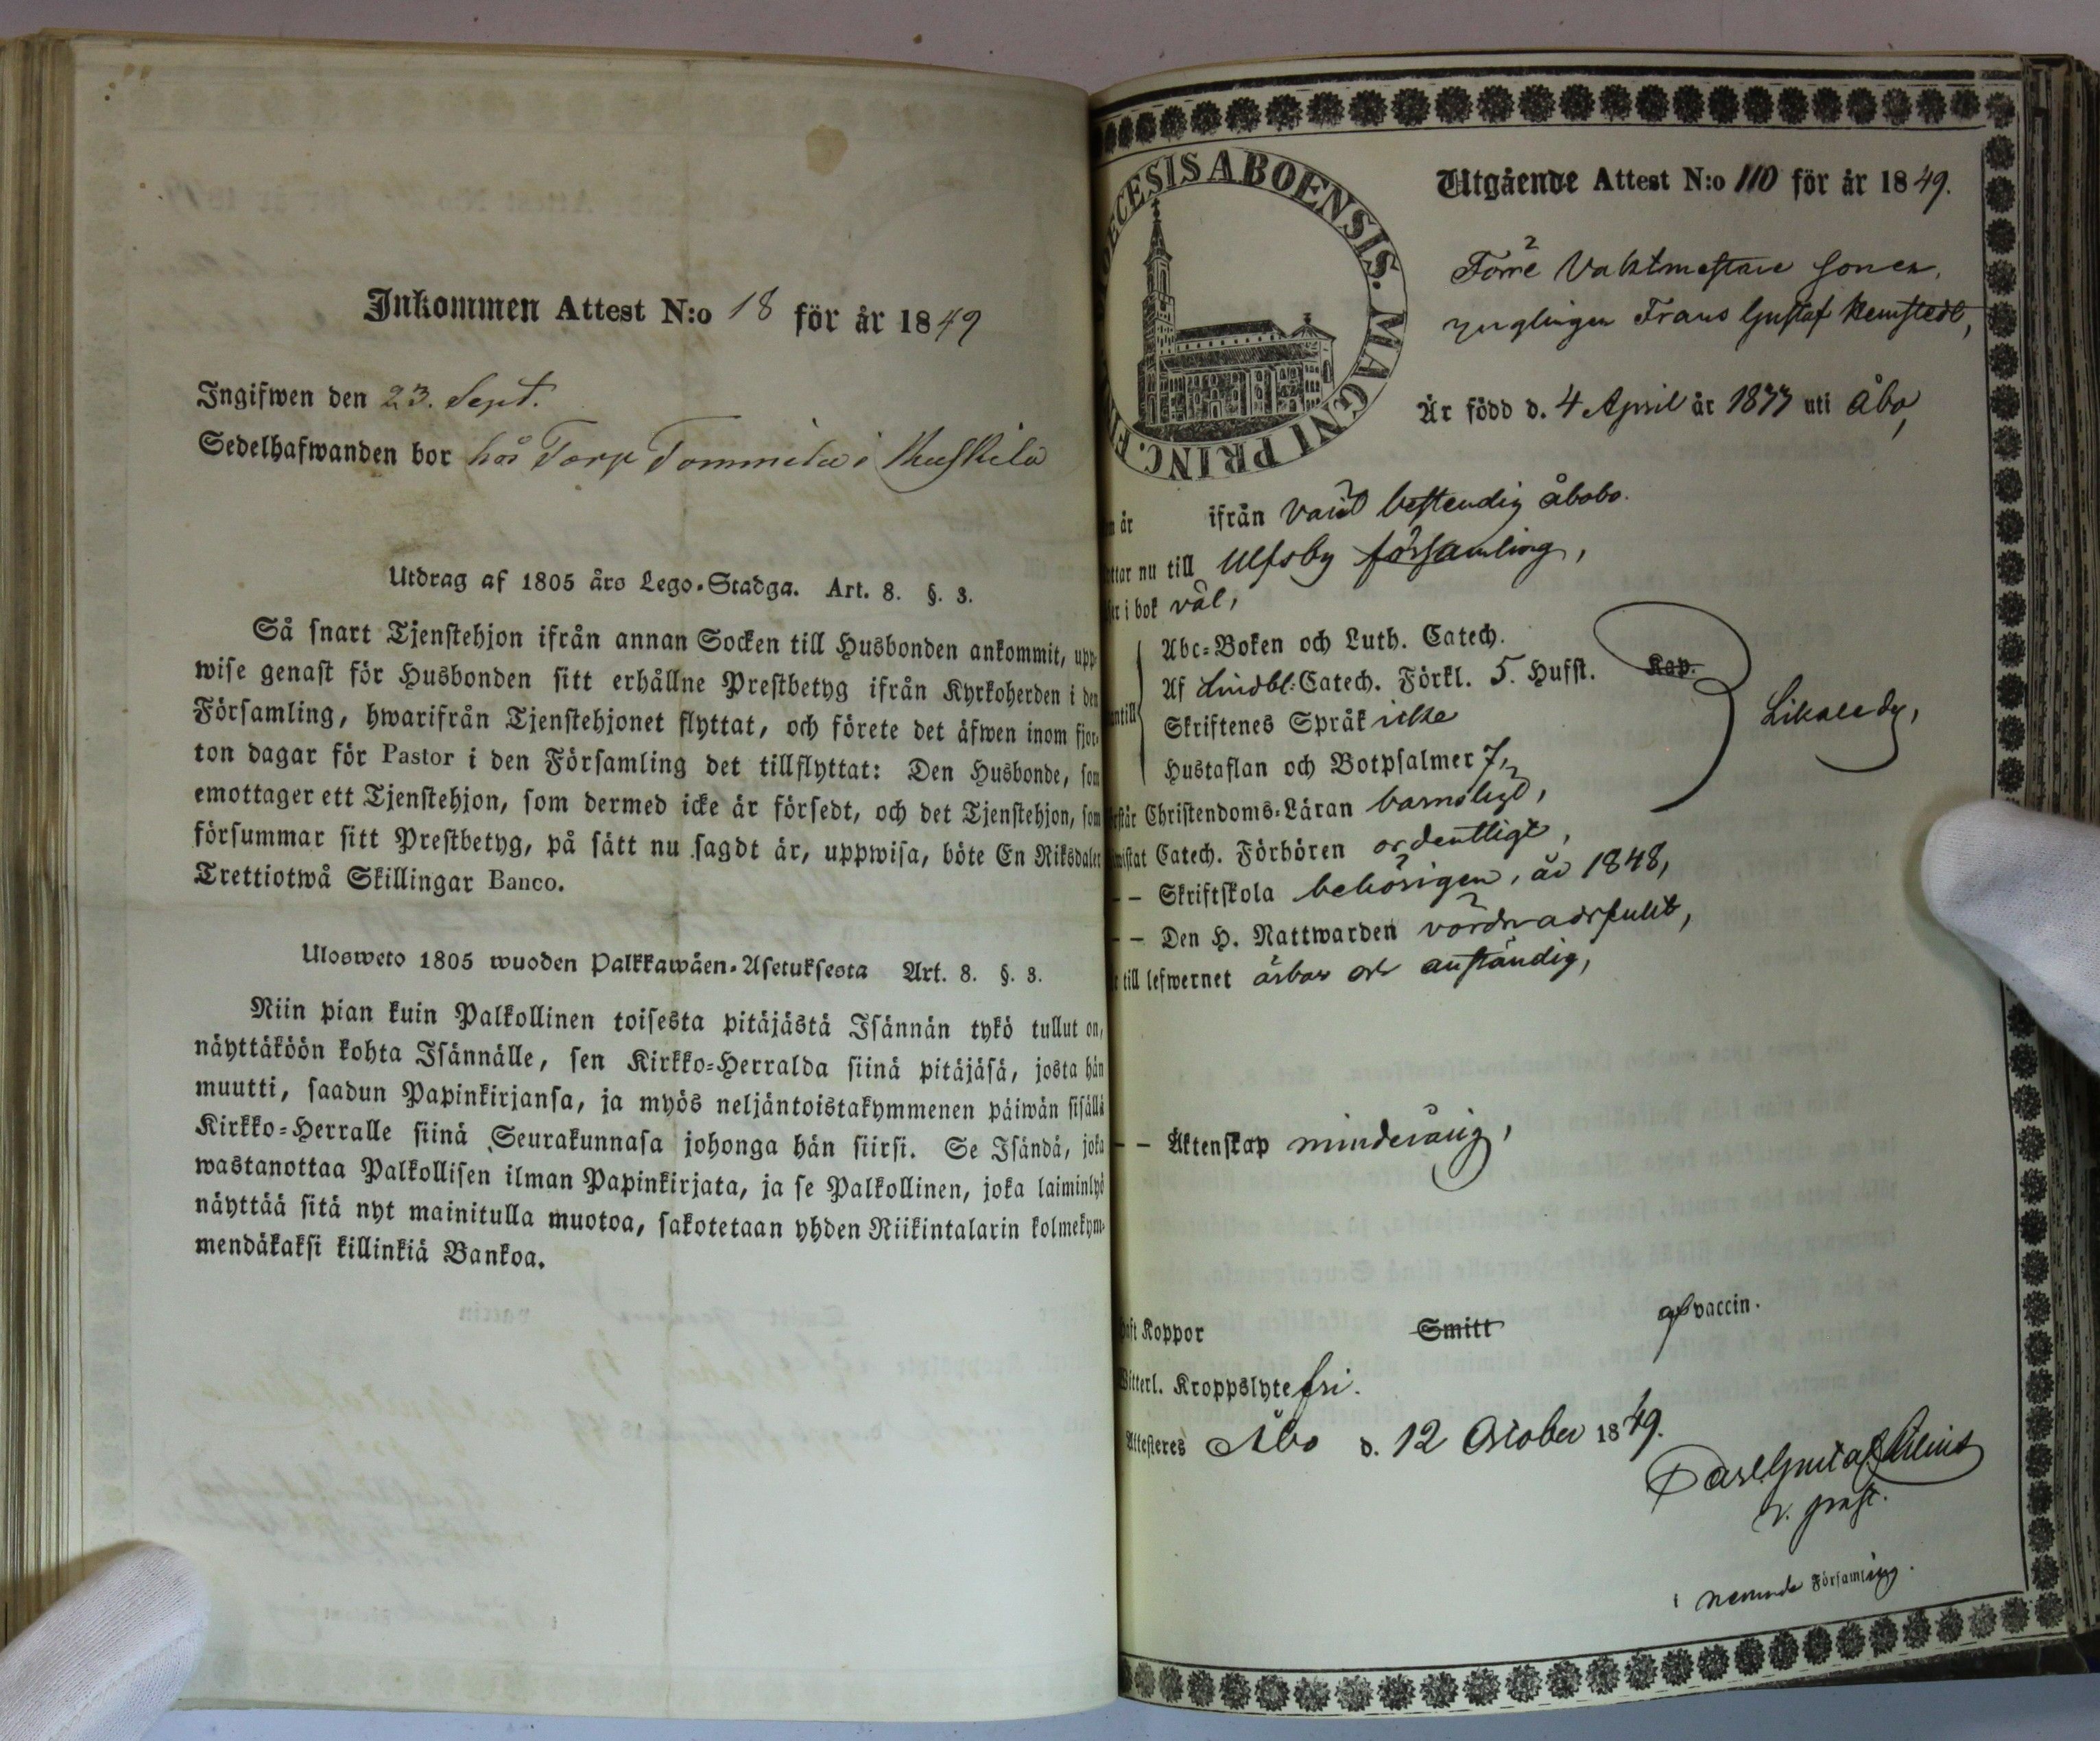 Inkommen Attest N:o 18 för år 1849
Ingifwen den 23. Sept.
Sedelhafwanden bor hos Torp Tommila i
Utdrag af 1805 års Lego-Stadga. Art. 8. §. 3.
Så snart Tjenstehjon ifrån annan Socken till Husbonden ankommit, upp-
wise genast för Husbonden sitt erhållne Prestbetyg ifrån Kyrkoherden i den
Församling, hwarifrån Tjenstehjonet flyttat, och förete det äfwen inom fjor-
ton dagar för Pastor i den Församling det tillflyttat: Den Husbonde, som
emottager ett Tjenstehjon, som dermed icke är försedt, och det Tjenstehjon, som
försummar sitt Prestbetyg, på sätt nu sagdt är, uppwisa, böte En Riksdaler
Trettiotwå Skillingar Banco.
Ulosweto 1805 wuoden Palkkawäen-Asetuksesta Art. 8. §. 3.
Niin pian kuin Palkollinen toisesta pitäjästä Isännän tykö tullut on,
näyttäköön kohta Isännälle, sen Kirkko-Herralda siinä pitäjäsä, josta hän
muutti, saadun Papinkirjansa, ja myös neljäntoistakymmenen päiwän sisällä
Kirkko-Herralle siinä Seurakunnasa johonga hän siirsi. Se Isändä, joka
wastanottaa Palkollisen ilman Papinkirjata, ja se Palkollinen, joka laiminlyö
näyttää sitä nyt mainitulla muotoa, sakotetaan yhden Riikintalarin kolmekym-
mendäkaksi killinkiä Bankoa.
ECESIS ABOENSIS. MAGNI PRINC. F
Utgående Attest N:o 110 för år 1849.
Förre Vaktmestare sonen,
ynglingen Frans Gustaf Remstedt,
Är född d. 4 April år 1833 uti Åbo,
år ifrån varit bestendig åbobo.
ttar nu till Ulfsby församling,
er i bok väl,
Abc-Boken och Luth. Catech.
Af Lindbl: Catech. Förkl. 5. Hufst. Kap.
ntill Skriftenes Språk icke
Likaledes,
Hustaflan och Botpsalmer 7,
rstår Christendoms-Läran barnsligt,
wistat Catech. Förhören ordentligt,
– – Skriftskola behörigen, år 1848,
– – Den H. Nattwarden vördnadsfullt,
r till lefwernet ärbar och anständig,
– – Äktenskap minderårig,
aft Koppor Smitt af vaccin.
Witterl. Kroppslyte fri.
Attesteres Åbo d. 12 October 1849.
Carl Gustaf
v. past.
i nemnde Församling.